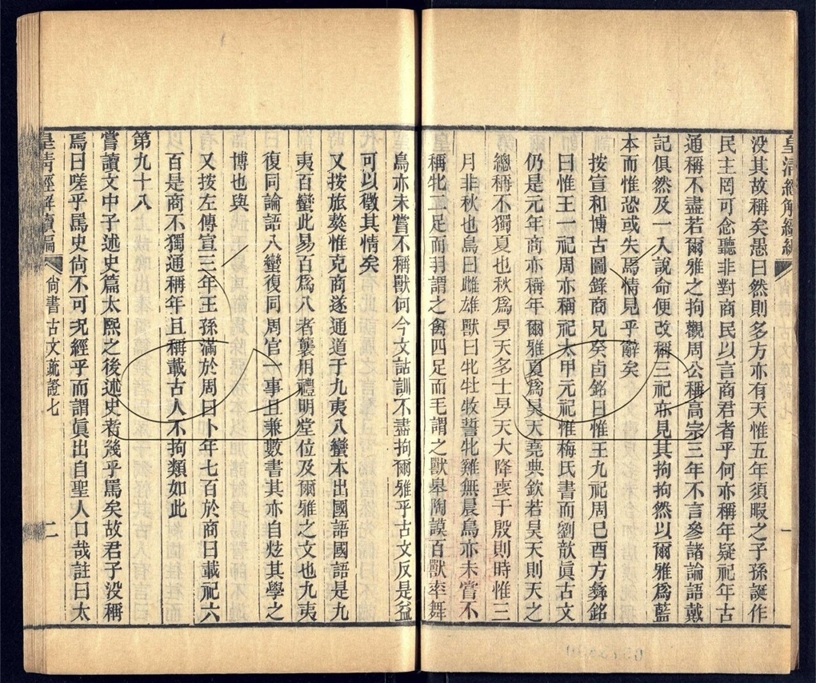 皇清經解續編
尚書古文疏證七
一
没其故稱矣愚曰然則多方亦有天惟五年須暇之子孫誕作
民主罔可念聽非對商民以言商君者乎何亦稱年疑祀年古
通稱不盡若爾雅之拘觀周公稱高宗三年不言參諸論語戴
記俱然及一入說命便改稱三祀亦見其拘拘然以爾雅爲藍
本而惟恐或失焉情見乎辭矣
按宣和博古圖錄商兄癸卣銘曰惟王九祀周巳酉方彝銘
曰惟王一祀周亦稱祀太甲元祀惟梅氏書而劉歆眞古文
仍是元年商亦稱年爾雅夏爲昊天堯典欽若昊天則天之
總稱不獨夏也秋爲旻天多士旻天大降喪于殷則時惟三
月非秋也鳥曰雌雄獸曰牝牡牧誓牝雞無晨鳥亦未嘗不
稱牝二足而羽謂之禽四足而毛謂之獸皋陶謨百獸率舞
鳥亦未嘗不稱獸何今文詁訓不盡拘爾雅乎古文反是益
可以徵其情矣
又按旅獒惟克商遂通道于九夷八蠻本出國語國語是九
夷百蠻此易百爲八者襲用禮明堂位及爾雅之文也九夷
復同論語八蠻復同周官一事且兼數書其亦自炫其學之
博也與
又按左傳宣三年王孫滿於周曰卜年七百於商曰載祀六
百是商不獨通稱年且稱載古人不拘類如此
第九十八
嘗讀文中子述史篇太熙之後述史者幾乎罵矣故君子没稱
焉曰嗟乎罵史尙不可况經乎而謂眞出自聖人口哉註曰太
皇清經解續編
尚書古文疏證七
二